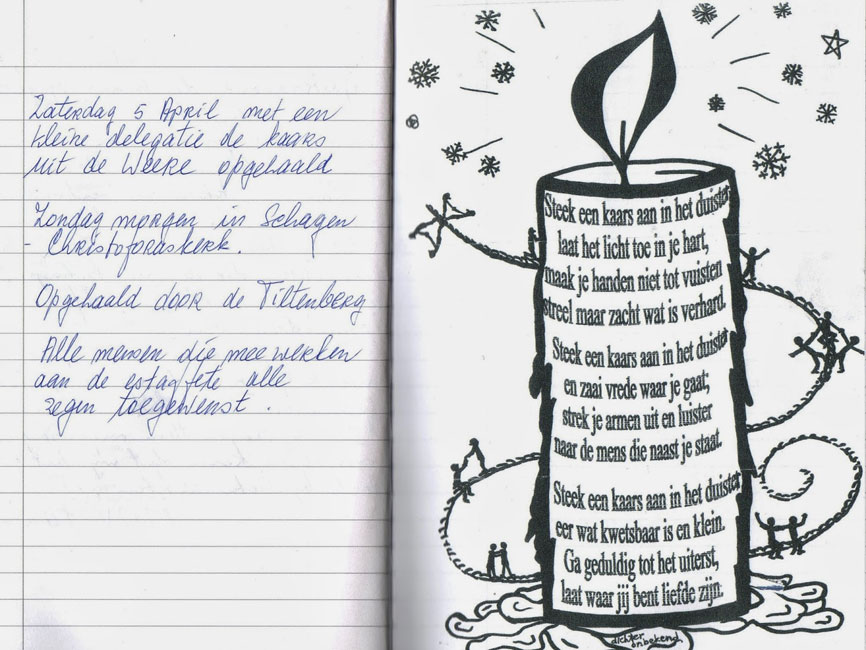 Zaterdag 5 April met een
kleine delegatie de kaars
uit de Weere opgehaald
Zondag morgen in Schagen
- Christoforaskerk.
Opgehaald door de Tiltenberg
Alle mensen die meewerken
aan de estaffete alle
zegen toegewenst.
Steek een kaars aan in het duister
laat het licht toe in je hart,
maak je handen niet tot vuisten
streel maar zacht wat is verhard.
Steek een kaars aan in het duister
en zaai vrede waar je gaat;
strek je armen uit en luister
naar de mens die naast je staat.
Steek een kaars aan in het duister
eer wat kwetsbaar is en klein.
Ga geduldig tot het uiterst,
laat waar jij bent liefde zijn.
dichter
onbekend